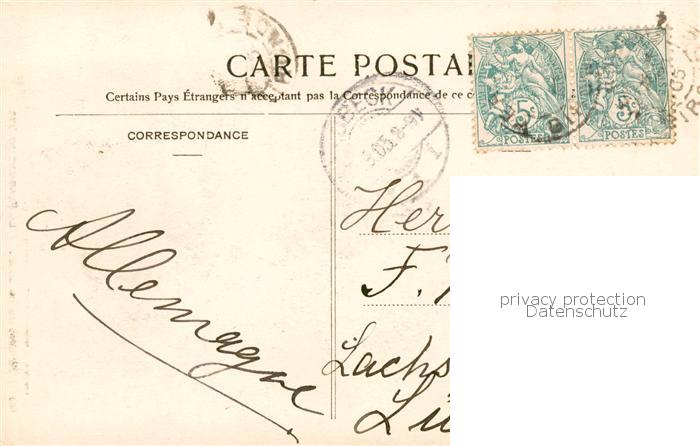 CARTE POSTA
Certains Pays Étrangers n'acceptant pas la Correspondance de ce c
CORRESPONDANCE
5c 5c
POSTES POSTES
BECK
Allemagne
Her
F.
Lachs
Lü
privacy protection
Datenschutz